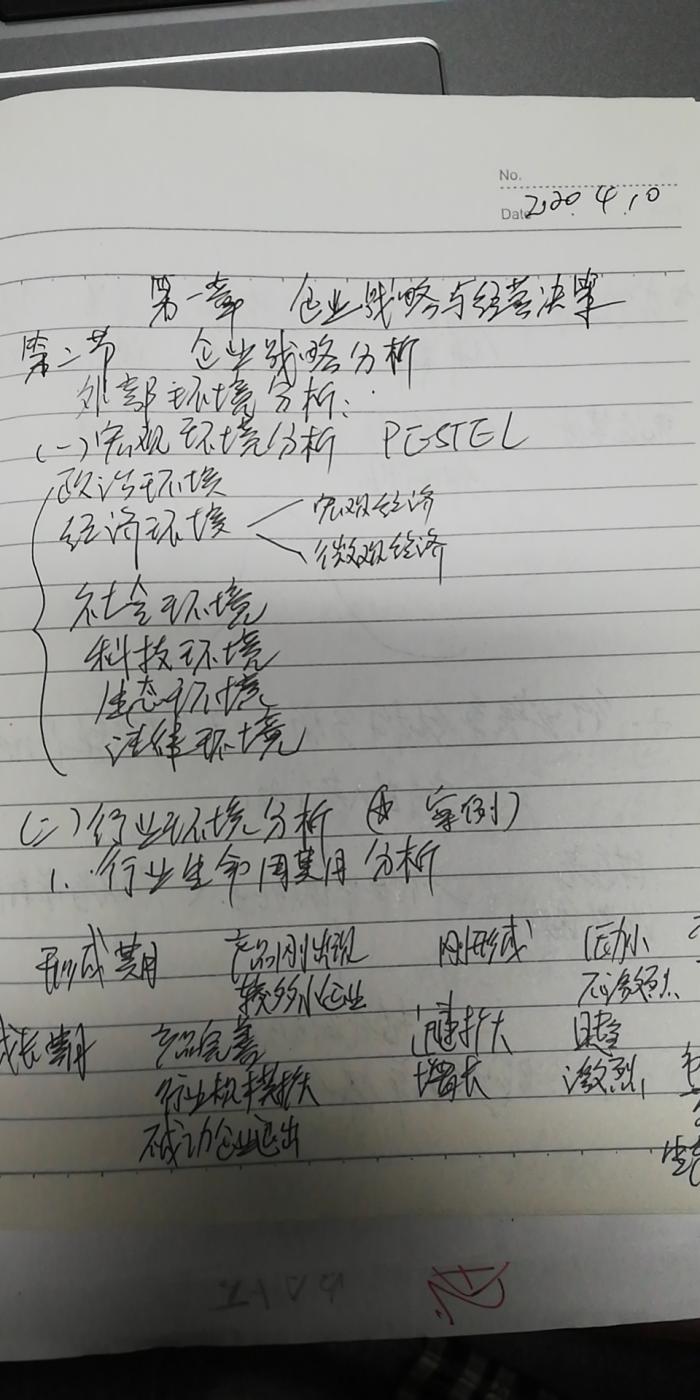 No.
Date 2020.4.10
第一章 企业战略与经营决策
第二节 企业战略分析
外部环境分析:
(一)宏观环境分析 PESTEL
政治环境
经济环境
宏观经济
微观经济
社会环境
科技环境
生态环境
法律环境
(二)行业环境分析 (☆ 案例)
1. 行业生命周期分析
形成期 产品刚出现 刚形成 压力小
较多小企业 不激烈
成长期 产品完善 迅速扩大 日趋
行业规模扩大 增长 激烈
不成功企业退出